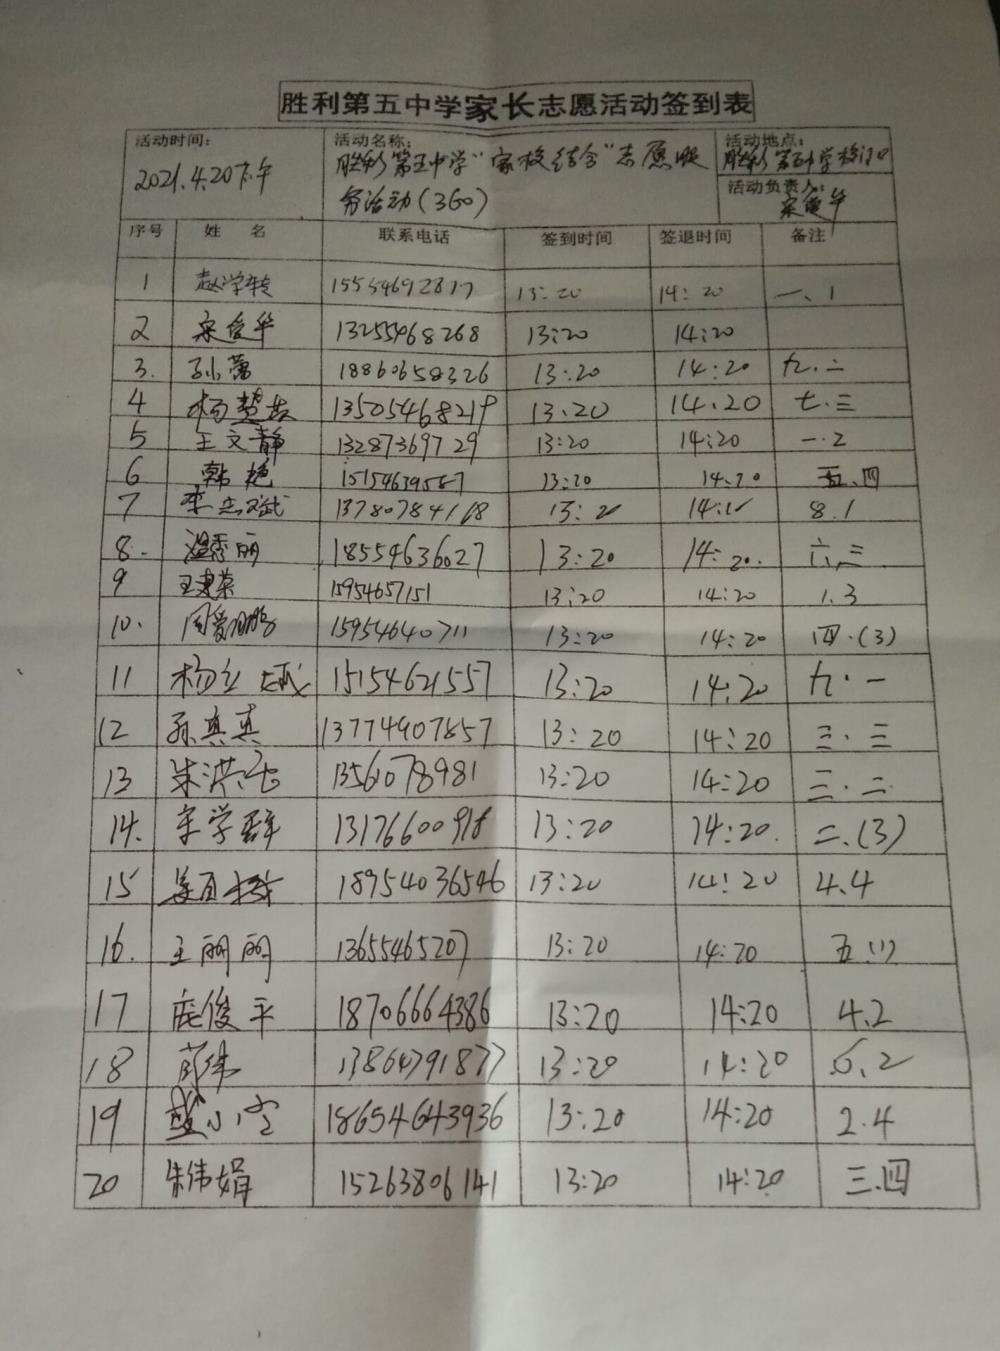 胜利第五中学家长志愿活动签到表
活动时间: 活动名称: 活动地点:
2021.4.20下午 胜利第五中学"家校结合"志愿服 胜利第五中学校门口
务活动(360) 活动负责人: 宋俊华
序号 姓名 联系电话 签到时间 签退时间 备注
1 13:20 14:20 一、1
2 宋俊华 13255468268 13:20 14:20
3. 孙小蕾 18860658326 13:20 14:20 九.二
4 杨楚 13505468219 13.20 14.20 七.三
5 王文静 13287369729 13:20 14:20 一.2
6 韩艳 15154639587 13:20 14:20 五.四
7 李志斌 13780784168 13:2 14:1 8.1
8. 温秀丽 18554636027 13:20 14:20. 六.三
9 王建荣 15954657151 13:20 14:20 1.3
10. 周爱鹏 15954640711 13:20 14:20 四.(3)
11 杨立斌 15154621557 13:20 14:20 九.一
12 孙真真 13774907857 13:20 14:20 三.三
13 朱洪 1356078981 13:20 14:20 三.二
14. 宋学群 13176600918 13:20 14:20. 二.(3)
15 18954036546 13:20 14:20 4.4
16. 王丽丽 13655465207 13:20 14:20 五.(1)
17 庞俊平 18706664386 13:20 14:20 4.2
18 13864791877 13:20 14:20 6.2
19 盛小雪 18654643936 13:20 14:20 2.4
20 朱伟娟 15263806141 13:20 14:20 三.四